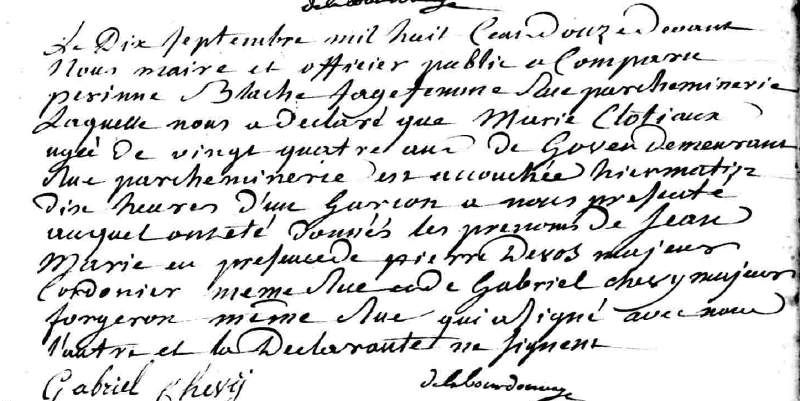 delabourdonnaye
Le Dix Septembre mil huit Cent Douze devant
Nous maire et officier public a Comparu
perinne Blache sage femme Rue parcheminerie
Laquelle nous a Declaré que Marie Clotiaux
agée de vingt quatre ans de Goven demeurant
Rue parcheminerie est accouchée hier matin
dix heures d'un Garcon a nous presenté
auquel ont été donnés les prenoms de Jean
Marie en presence de pierre Devos majeur
Cordonier meme Rue et de Gabriel chevy majeur
forgeron même Rue qui a signé avec nous
l'autre et la Declarante ne signent
Gabriel Chevy
delabourdonnaye